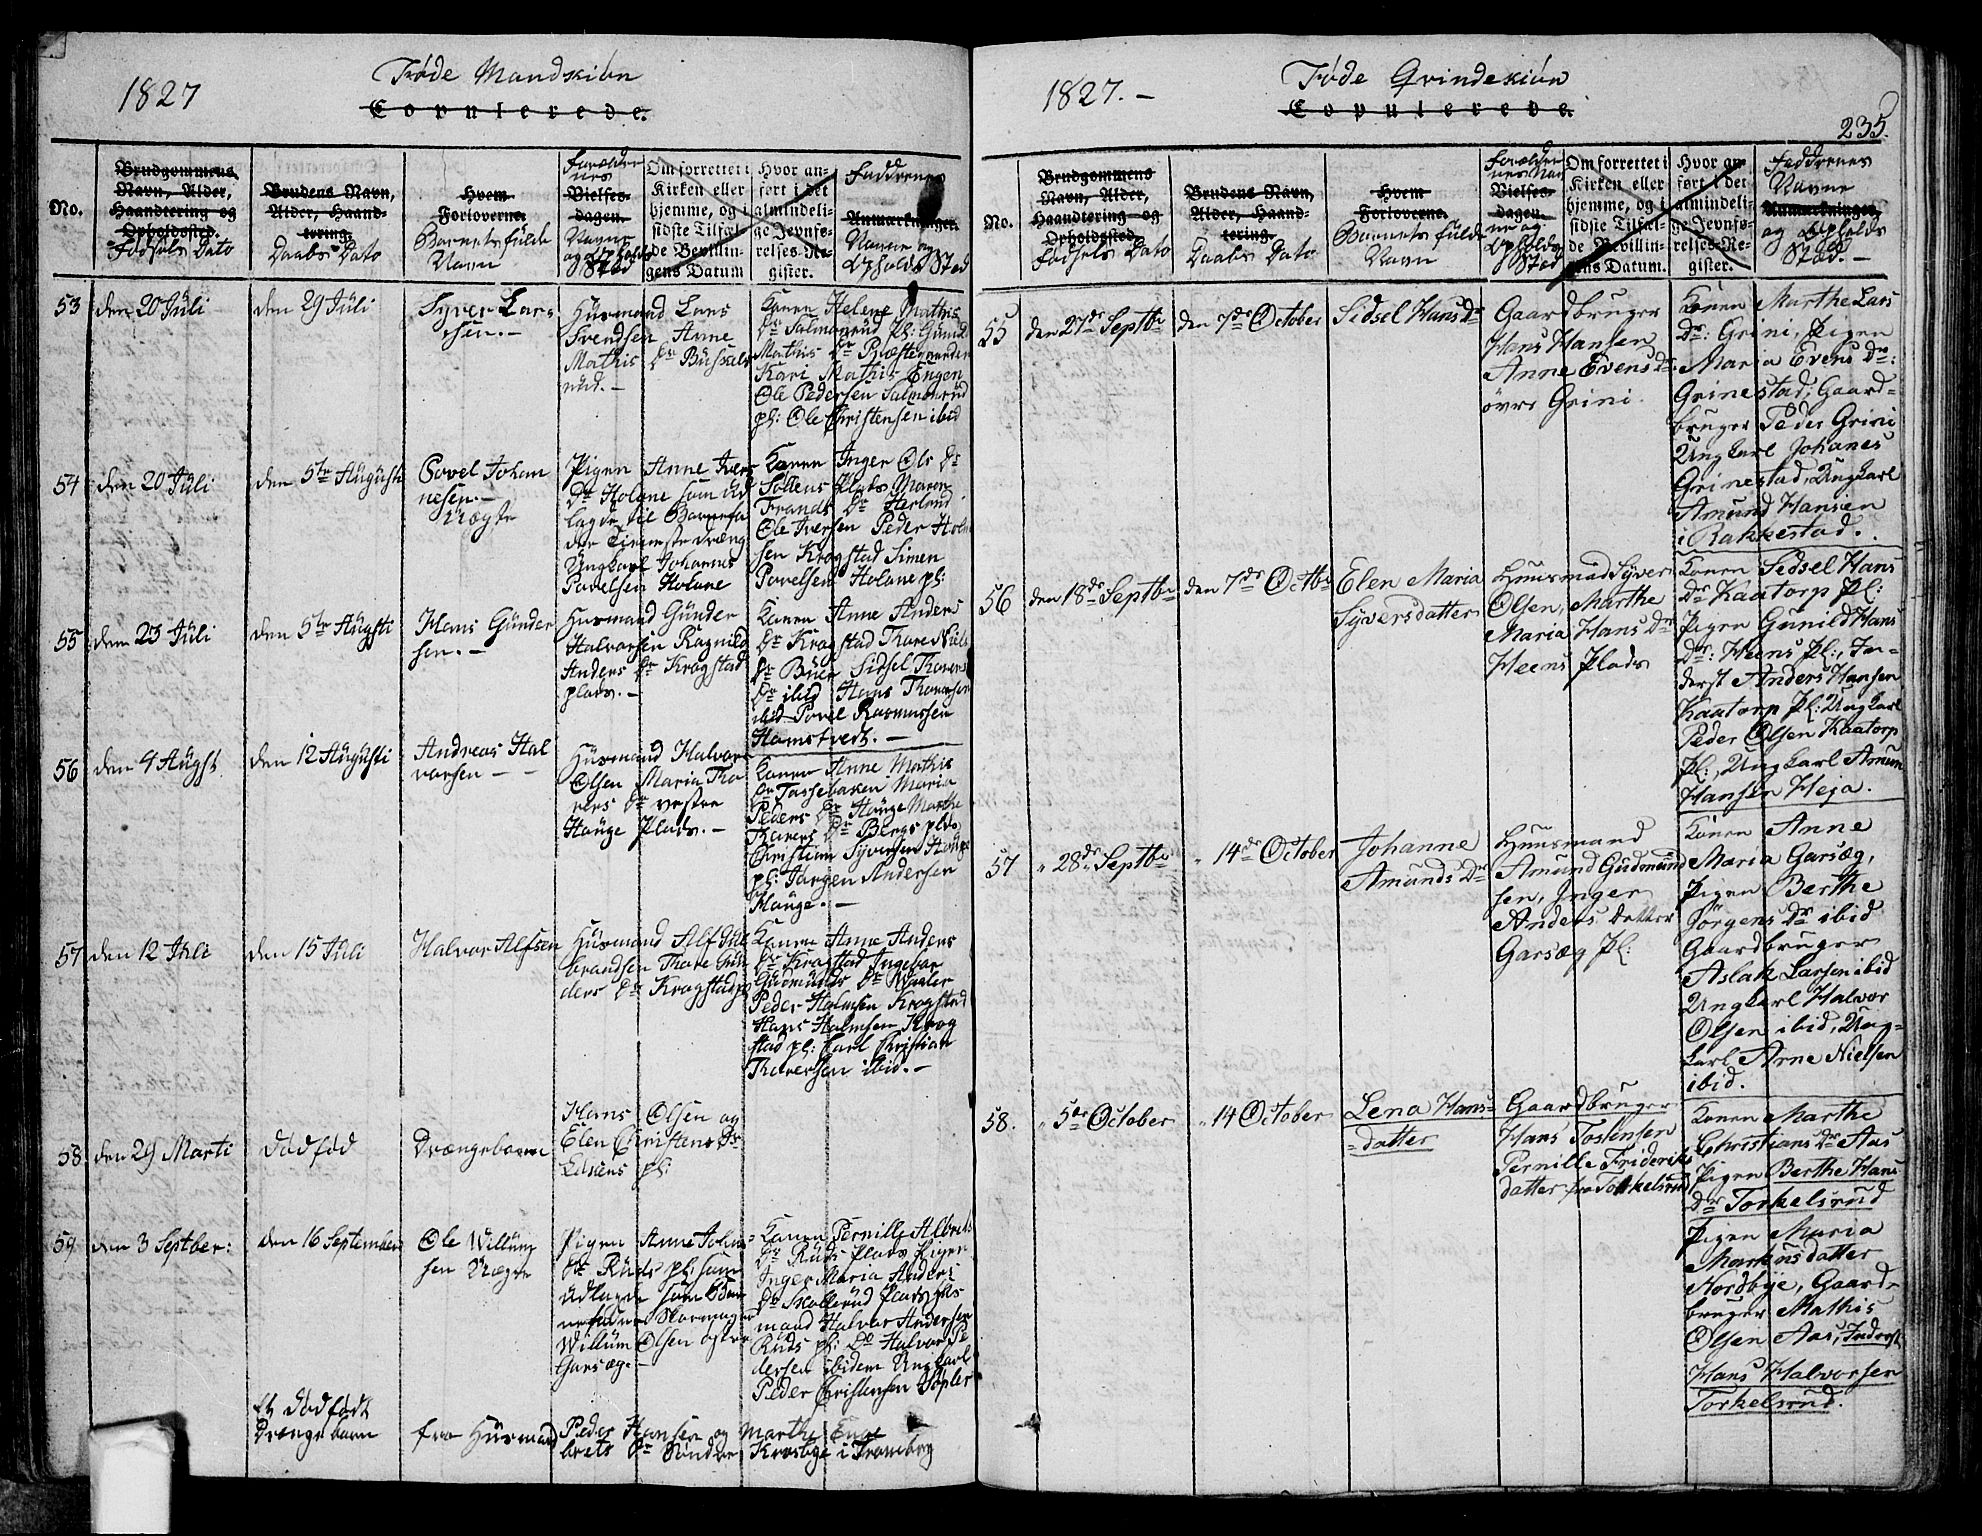 1827
Fødde Mandkiøn
Copulerede.
No.
Brudgommens
Navn, Alder,
Haandtering og
Opholdssted.
Fødsels Dato
Brudens Navn,
Alder, Haand-
tering.
Daabs Dato
Hvem
Forloverne.
Barnets fulde
Navn
Forældre
nes
Vielses-
dagen.
Navne
og Opholds
Sted
Om forrettet i
Kirken eller
hjemme, og i
sidste Tilfæl-
de Bevillin-
gens Datum
Hvor an-
ført i det
almindeli-
ge Jevnfø-
relses-Re-
gister.
Faddrenes
Anmærkninger.
Navne og
Opholds Sted
53
den 20 Juli
den 29 Juli
Syver Lar-
sen.-
Husmand Lars
Svendsen Anne
Mathis Dr
rud.-
Konen Helene Mathis
Dr Salmonrud Pl: Gunild
Mathis Dr Præstegaarden
Kari Mathis Engen
Ole Pedersen Salmonrud
pl: Ole Christensen ibid
54
den 20 Juli
den 5te August
Povel Johan
nesen.-
Uægte
Pigen Anne Ivers
Dr Holane som ud
lagde til Barnefa
der Tieneste dreng
Ungkarl Johannes
Povelsen Holane
Konen Inger Ols Dr
Sollens Plads Maren
Frands Dr Herland
Ole Iversen Peder Hol
sen Krogstad Simen
Povelsen Holane pl:
55
den 23 Juli
den 5te Augsti
Hans Gunder
sen.-
Husmand Gunder
Halvorsen Ragnild
Anders Dr Krogstad
plads.-
Konen Anne Anders
Dr Krogstad Thore Niels
Dr Buer Sidsel Thorers
Dr ibid Hans Thoresen
ibid Povel Rasmussen
Hamstvedt.-
56
den 4 Augst
den 12 Augusti
Andreas Hal
vorsen - -
Husmand Halvor
Olsen Maria Tho
rers Dr vestre
Houge Plads.-
Konen Anne Mathis
Dr Tassebaken Maria
Peders Dr Houge Marthe
Thorers Dr Bergs plds
Christian Syversen Houge
pl: Jørgen Andersen
Houge.-
57
den 12 Juli
den 15 Juli
Halvor Alfsen
Husmand Alf Gul
brandsen Thore Gun
ders Dr Krogstadpl
Konen Anne Anders
Dr Krogstad Ingebor
Gudmunds Dr Waaler
Peder Holmsen Krogstad
Hans Holmsen Krog
stad pl: Carl Christian
Thoresen ibid.-
58
den 29 Marti
dødfød
Drængebarn
Hans Olsen og
Elen Christians Dr
pl:
59
den 3 Septber:
den 16 September
Ole Willum
sen Uægte
Pigen Anne Johns
Dr Ruds pl: som
udlagde som Bar
nefader Skomager
Willum Olsen
Garsæg.-
Konen Pernille Albrets
Dr Ruds Plads Pigen
Inger Maria Anders
Dr Skallerud Plads Hus
mand Halvor Andersen
Ruds pl: Do Halvor Pe
dersen ibidem Ungkarl
Peder Christensen
Et dødfødt
Drengebarn
fra Husmand Peder Hansen og Marthe Enge
brets Dr Søndre Krosbye i Trømborg
1827.-
Fødde Qvindekiøn
Copulerede.
235.
No.
Brudgommens
Navn, Alder,
Haandtering og
Opholdssted.
Fødsels Dato
Brudens Navn,
Alder, Haand-
tering.
Daabs Dato
Hvem
Forloverne.
Barnets fulde
Navn
Forældre
nes Nav
Vielses-
dagen.
ne og
Opholds
Sted
Om forrettet i
Kirken eller
hjemme, og i
sidste Tilfæl-
de Bevillin-
gens Datum.
Hvor an-
ført i det
almindeli-
ge Jevnfø-
relses-Re-
gister.
Faddrenes
Navne
Anmærkninger.
og Opholds
Sted.-
55
den 27de Septbr
den 7de October
Sidsel Hans Dr
Gaardbruger
Hans Hansen
Anne Evens Dr
övre Grini.
Konen Marthe Lars
Dr: Grini, Pigen
Maria Evens Dr:
Grinestad, Gaard-
bruger Peder Grini
Ungkarl Johanes
Grinestad, Ungkarl
Amund Hansen
i Rakkestad.
56
den 18de Septbr
den 7de Octbr
Elen Maria
Syversdatter
Huusmad Syver
Olsen, Marthe
Maria Hans Dr
Heens Plads
Konen Sidsel Hans
Dr Kaatorp Pl:
Pigen Gunild Hans
Dr: Heens Pl:, In-
derst Anders Hansen
Kaatorp Pl: Ungkarl
Peder Olsen Kaatorp
Pl:, Ungkarl Amun
Hansen Heja.
57
" 28de Septbr
" 14de October
Johanne
Amunds Dr
Huusmand
Amund Gudmund
sen, Inger
Anders datter
Garsæg Pl:
Konen Anne
Maria Garsæg,
Pigen Berthe
Jörgens Dr ibid
Gaardbruger
Aslak Larsen ibid
Ungkarl Halvor
Olsen ibid, Ung-
karl Arne Nielsen
ibid.
58.
" 5te October
" 14 October
Lena Hans-
=datter
Gaardbruger
Hans Tostensen
Pernille Frideriks
datter fra Torkelsrud
Konen Marthe
Christians Dr Aas
Pigen Berthe Hans
Dr Torkelsrud
Pigen Maria
Markus datter
Nordbye, Gaard-
bruger Mathis
Olsen Aas, Inderst
Hans Halvorsen
Torkelsrud.